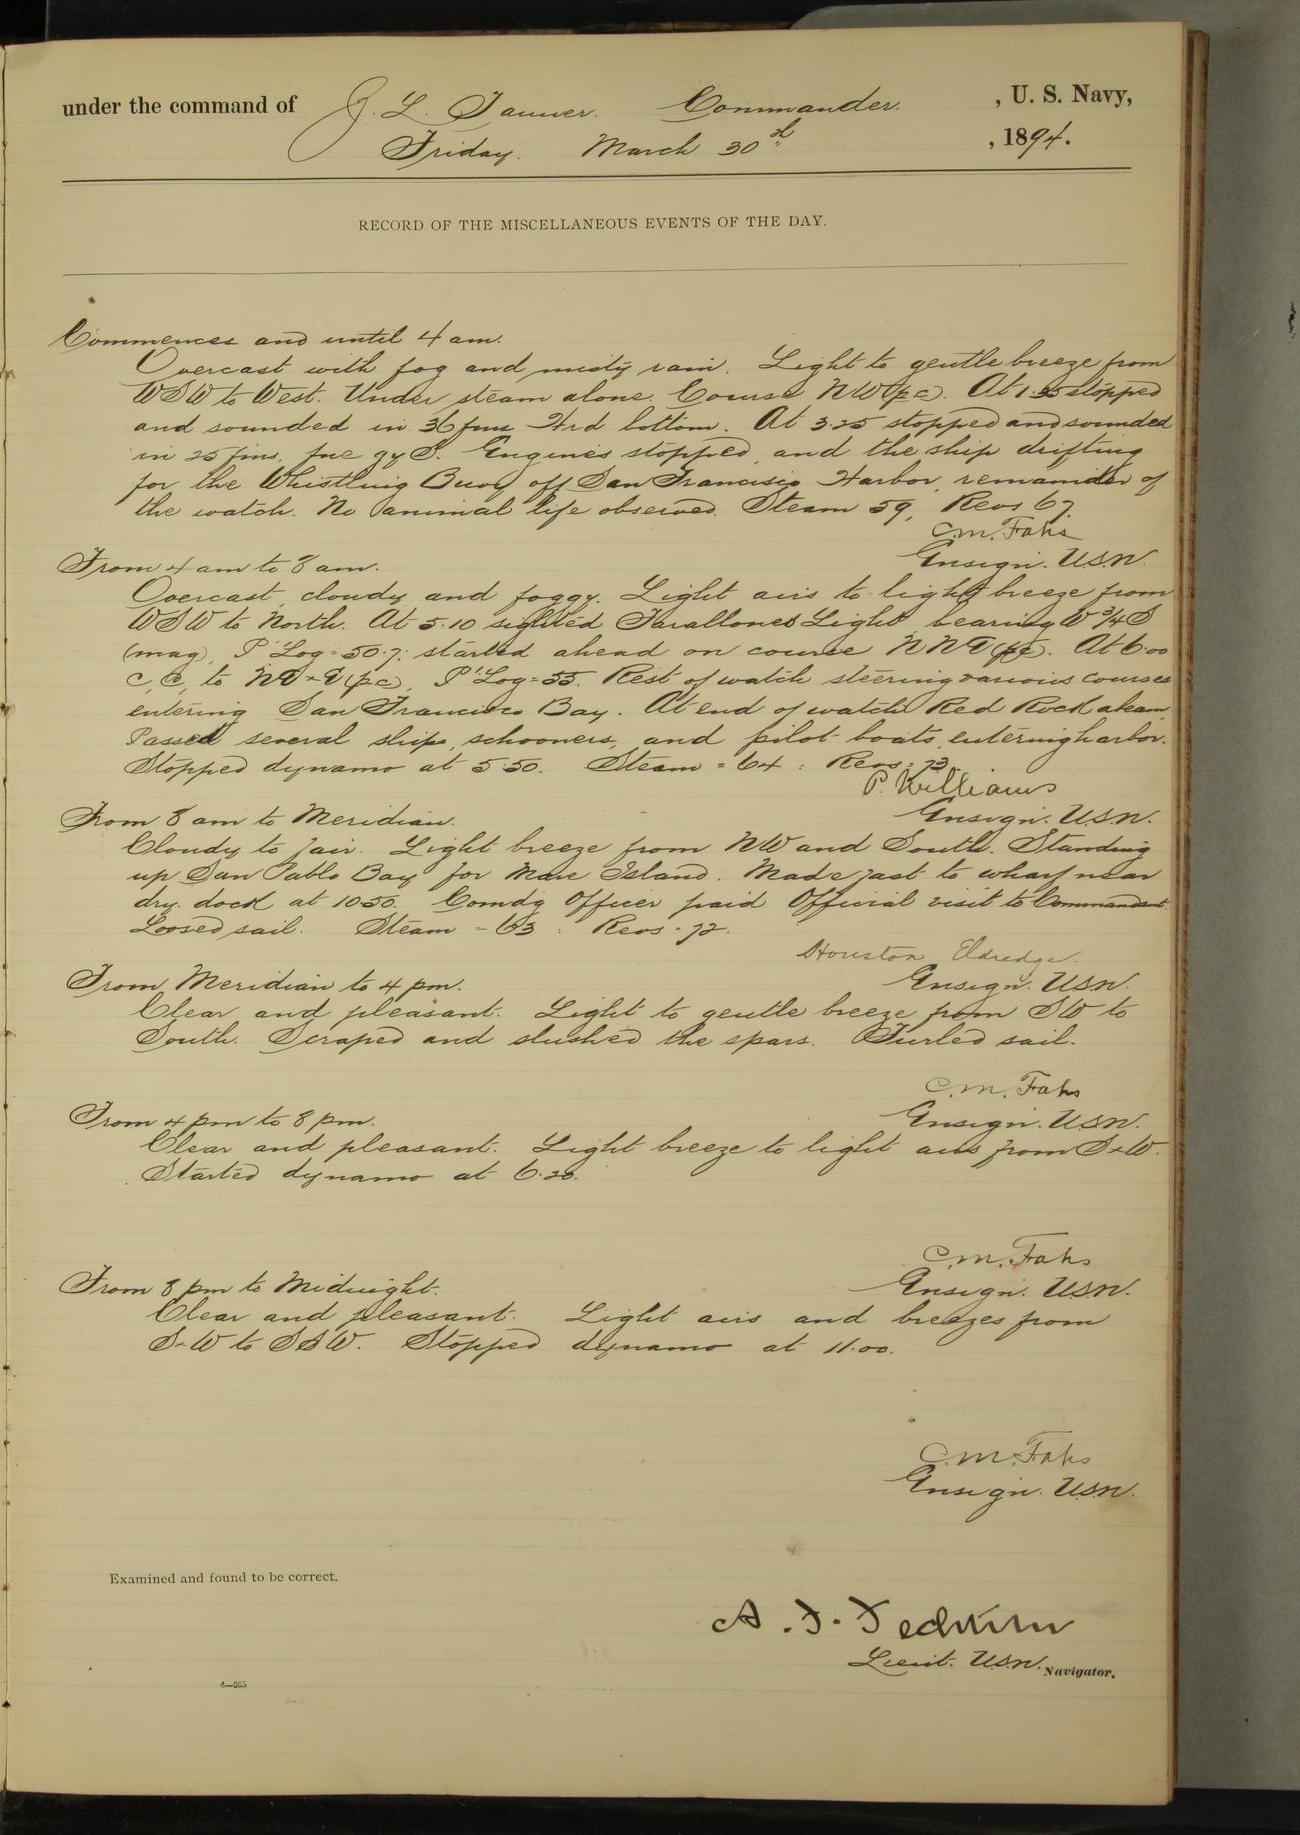 under the command of Z. L. Tanner. Commander. , U. S. Navy,
Friday. March 30th. , 1894.
RECORD OF THE MISCELLANEOUS EVENTS OF THE DAY.
Commences and until 4 am.
Overcast with fog and misty rain. Light to gentle breeze from
WSW to West. Under steam alone. Course NW (pc). At 1.35 stopped
and sounded in 36 fms Hrd bottom. At 3.25 stopped and sounded
in 25 fms, fne gy S. Engines stopped, and the ship drifting
for the Whistling Buoy off San Francisco Harbor, remainder of
the watch. No animal life observed. Steam 59, Revs 67.
C.M. Fahs
Ensign. U.S.N.
From 4 am to 8 am.
Overcast, cloudy and foggy. Light airs to light breeze from
WSW to North. At 5.10 sighted Farallones Light bearing W 3/4 S
(mag), P. Log = 50.7; started ahead on course NNE (pc). At 6.00
c,c, to NExE (pc), P. Log = 55. Rest of watch steering various courses
entering San Francisco Bay. At end of watch Red Rock abeam.
Passed several ships, schooners, and pilot-boats, entering harbor.
Stopped dynamo at 5.50. Steam = 64 : Revs = 73.
P. Williams
Ensign. U.S.N.
From 8 am to Meridian.
Cloudy to fair. Light breeze from NW and South. Standing
up San Pablo Bay for Mare Island. Made fast to wharf near
dry. dock at 10.50. Comdg Officer paid Official visit to Commandant.
Loosed sail. Steam = 63 : Revs = 72.
Houston Eldredge.
Ensign. U.S.N.
From Meridian to 4 pm.
Clear and pleasant. Light to gentle breeze from SW to
South. Scraped and slushed the spars. Furled sail.
C.M. Fahs
Ensign. U.S.N.
From 4 pm to 8 pm.
Clear and pleasant. Light breeze to light airs from SxW.
Started dynamo at 6.20.
C.M. Fahs
Ensign. U.S.N.
From 8 pm to Midnight.
Clear and pleasant. Light airs and breezes from
SxW to SSW. Stopped dynamo at 11.00.
C.M. Fahs
Ensign. U.S.N.
Examined and found to be correct.
A. F. Fechteler
Lieut. U.S.N. Navigator.
4—205